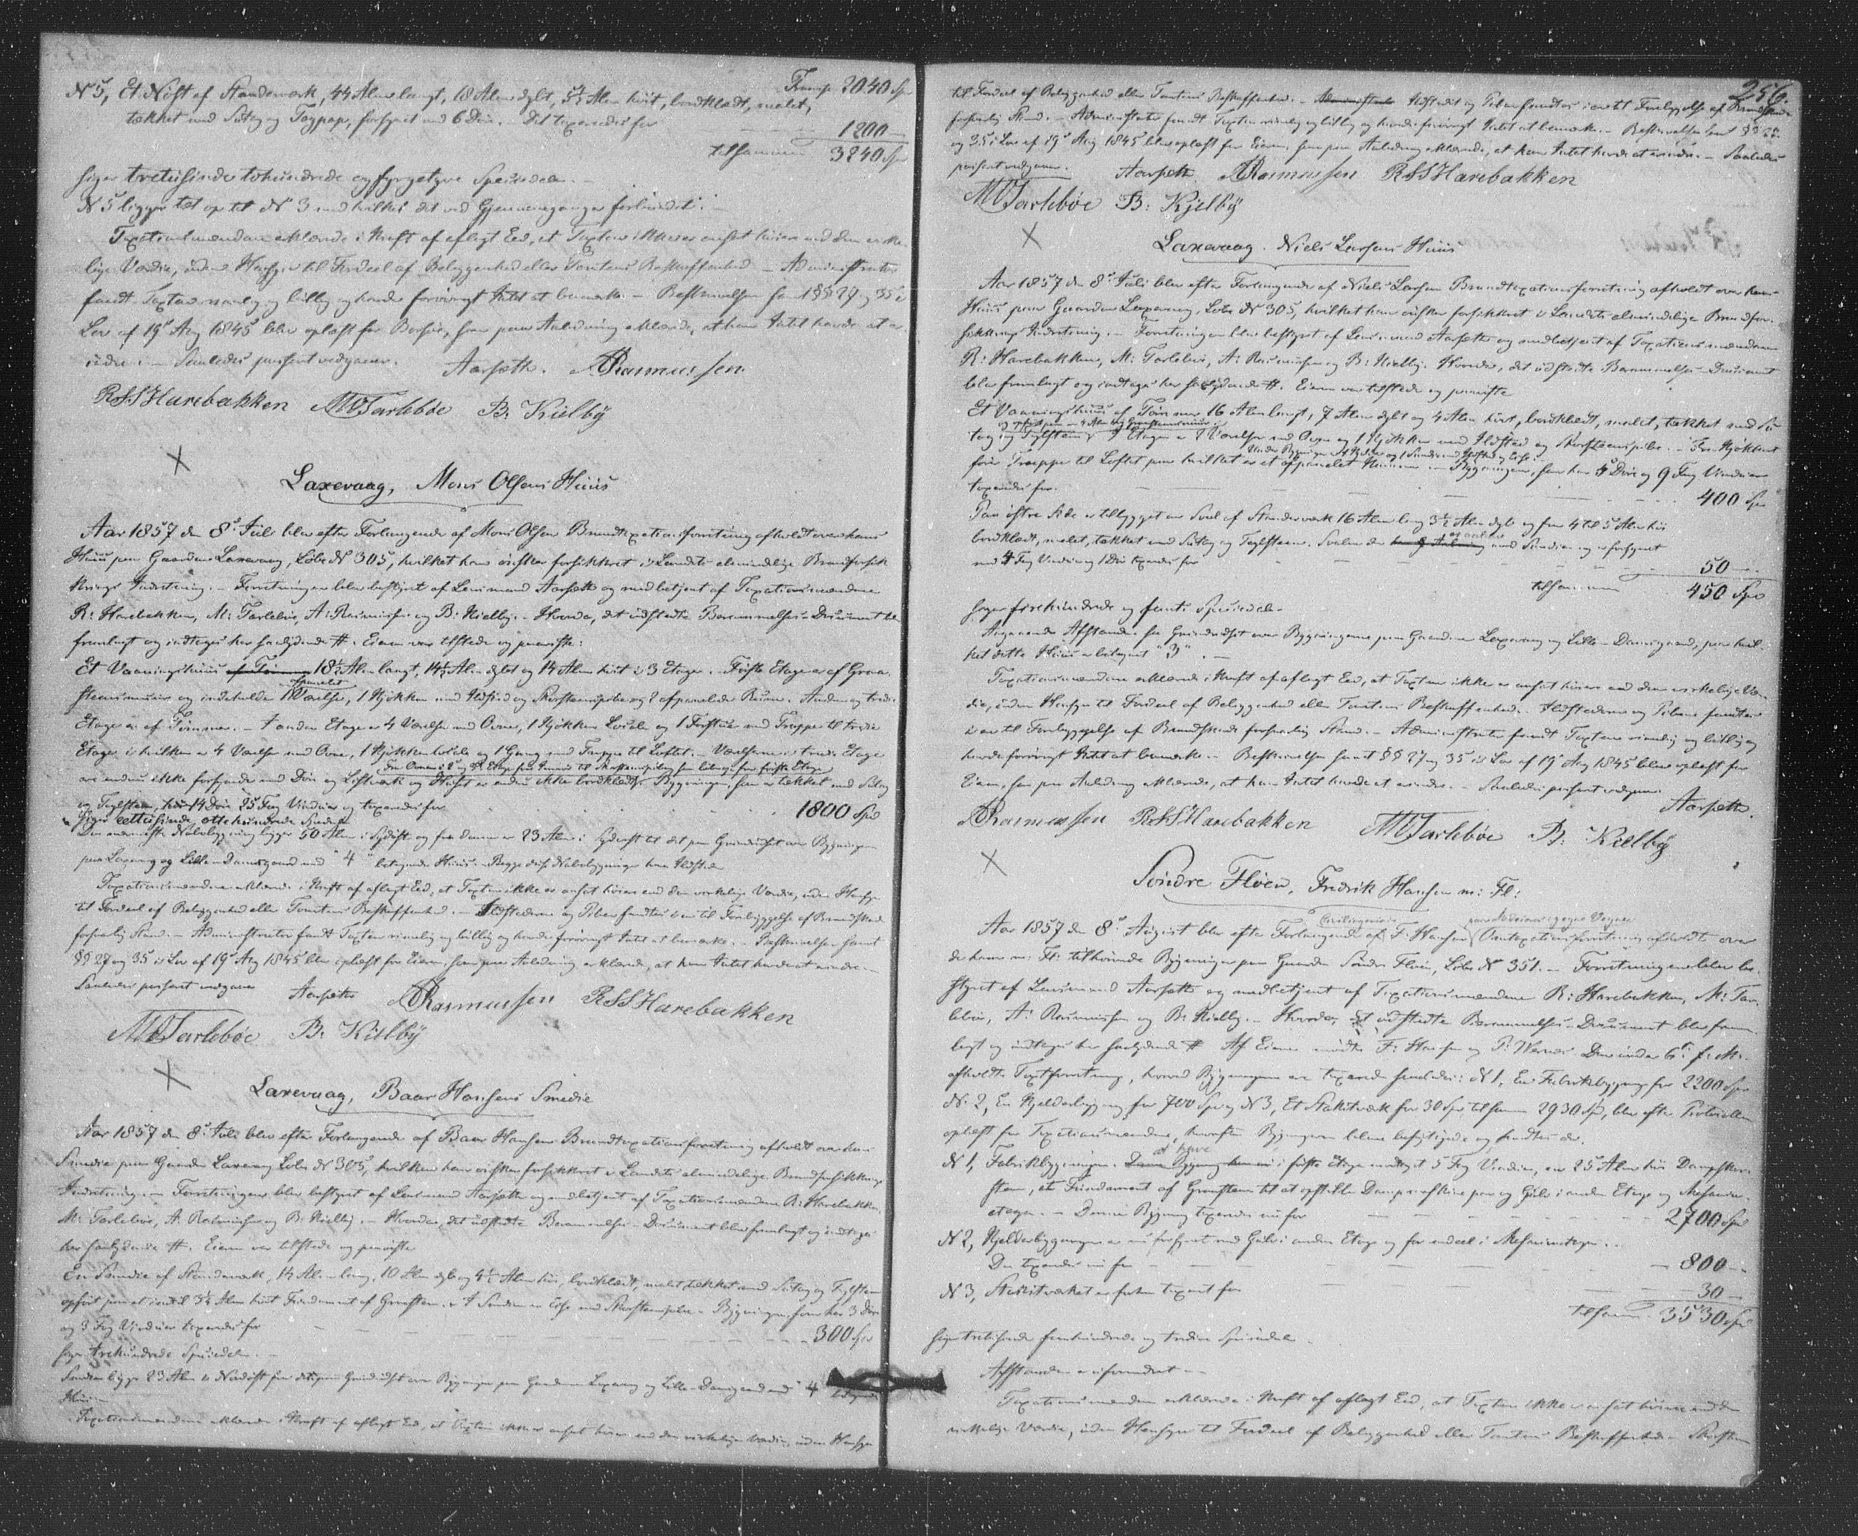 Transp. 2040 Spd
N 5, Et Nøst af Standværk, 44 Alen langt, 18 Alen dybt, 5½ Alen høit, bordklædt, malet,
tækket med Sutag og Tagpap, forsynet med 6 Døre. Det taxeredes for 1200
tilsammen 3240 Spd
siger tretusinde tohundrede og fyrgetyve Speciedaler.
N 5 ligger tæt op til N 3 med hvilket det ved Gjennemgange er forbundet.
Taxationsmændene erklærede i Kraft af aflagt Eed, at Taxten ikke er ansat høiere end den virke-
lige Værdie, uden Hensyn til Fordeel af Beliggenhed eller Tomtens Beskaffenhed. Administrator
fandt Taxten rimelig og billig og havde forøvrigt Intet at bemærke. Bestemmelsen samt §§ 27 og 35 i
Lov af 19de Aug 1845 blev oplæst for, som paa Anledning erklærede, at han Intet havde at er-
indre. Saaledes passeret vedgaaes. Aarseth. A Rasmussen.
R S S Harebakken M O Tarlebøe B. Kielby
Laxevaag, Mons Olsens Huus
Aar 1857 den 8de Juli blev efter Forlangende af Mons Olsen Brandtaxationsforretning afholdt over hans
Huus paa Gaarden Laxevaag, Løbe N 305, hvilket han ønsker forsikkret i Landets almindelige Brandforsik-
krings Indretning. Forretningen blev bestyret af Lensmand Aarseth og medbetjent af Taxationsmændene
R. Harebakken, M. Tarlebø, A. Rasmussen og B. Kielby. Hvorda, det udstædte Berammelses-Document blev
fremlagt og indtages her saalydende #. Eieren var tilstede og paaviste:
Et Vaaningshuus af Tømmer 18½ Alen langt, 14½ Alen dybt og 14 Alen høit i 3 Etager. Første Etage er af Graa-
steensmuur og indeholder 1 panelet Værelse, 1 Kjøkken med Ildsted og Skorsteenspibe og 2 afpanelede Rum. Anden og tredie
Etage er af Tømmer. I anden Etage er 4 Værelser med Ovne, 1 Kjøkken Loise og 1 Forstue med Trappe til tredie
Etage i hvilken er 4 Værelser med Ovne, 1 Kjøkken Loise og 1 Gang med Trappe til Loftet. Værelserne i tredie Etage
ere endnu ikke forsynede med Døre og Listværk og Huset er endnu ikke bordklædt. Bygningen, som er tækket med Sutag
og Taglsteen, har 14 Døre 25 Fag Vinduer og taxeredes for 1800 Spd
siger eettusinde, ottehundrede Speciedaler
Den nærmeste Nabobygning ligger 50 Alen i Sydøst og fra denne er 23 Alen i Sydvest til det paa Grundridset over Bygningerne
paa Laxevaag og Lille Damsgaard med "4" betegnede Huus. Begge disse Nabobygninger have Ildsteder
Taxationsmændene erklærede i Kraft af aflagt Eed, at Taxten ikke er ansat høiere end den virkelige Værdie, uden Hensyn
til Fordeel af Beliggenhed eller Tomtens Beskaffenhed. Ildstederne og Piberne fandtes i en til Forebyggelse af Brandskade
forsvarlig Stand. Administrator fandt Taxten rimelig og billig og havde forøvrigt Intet at bemærke. Bestemmelsen samt
§§ 27 og 35 i Lov af 19de Aug 1845 blev oplæst for Eieren, som paa Anledning erklærede, at han Intet havde at erindre.
Saaledes passeret vedgaaes Aarseth A Rasmussen R S S Harebakken
M O Tarlebøe B. Kielby
Laxevaag, Baar Hansens Smedie
Aar 1857 den 8de Juli blev efter Forlangende af Baar Hansen Brandtaxationsforretning afholdt over hans
Smedie paa Gaarden Laxevaag Løbe N 305, hvilken han ønsker forsikkret i Landets almindelige Brandforsikkrings
Indretning. Forretningen blev bestyret af Lensmand Aarseth og medbetjent af Taxationsmændene R. Harebakken,
M. Tarlebø, A. Rasmussen og B. Kielby. Hvorda, det udstædte Berammelses-Document blev fremlagt og indtages
her saalydende #. Eieren var tilstede og paaviste
En Smedie af Standværk, 14 Alen lang, 10 Alen dyb og 4½ Alen høi, bordklædt, malet tækket med Sutag og Taglsteen
opført paa et indtil 3½ Alen høit Fundament af Graasteen. I Smedien er Esse med Skorsteenspibe. Bygningen som har 3 Døre
og 3 Fag Vinduer taxeredes for 300 Spd
siger trehundrede Speciedaler.
Smedien ligger 23 Alen i Nordøst fra det paa Grundridset over Bygningerne paa Gaardene Laxevaag og Lille Damsgaard med "4" betegnede
Huus
Taxationsmændene erklærede i Kraft af aflagt Eed, at Taxten ikke er ansat høiere end den virkelige Værdie, uden Hensyn
256.
til Fordeel af Beliggenhed eller Tomtens Beskaffenhed. Ildstedet og Piben fandtes i en til Forebyggelse af Brandskade
forsvarlig Stand. Administrator fandt Taxten rimelig og billig og havde forøvrigt Intet at bemærke. Bestemmelsen samt §§ 27
og 35 i Lov af 19de Aug 1845 blev oplæst for Eieren, som paa Anledning erklærede, at han Intet havde at erindre. Saaledes
passeret vedgaaes. Aarseth A Rasmussen R S S Harebakken
M O Tarlebøe B. Kjelby
Laxevaag. Niels Larsens Huus
Aar 1857 den 8de Juli blev efter Forlangende af Niels Larsen Brandtaxationsforretning afholdt over hans
Huus paa Gaarden Laxevaag, Løbe N 305, hvilket han ønsker forsikkret i Landets almindelige Brandfor-
sikkrings Indretning. Forretningen blev bestyret af Lensmand Aarseth og medbetjent af Taxationsmændene
R. Harebakken, M. Tarlebø, A. Rasmussen og B. Kielby. Hvorda, det udstædte Berammelses-Document
blev fremlagt og indtages her saalydende #. Eieren var tilstede og paaviste
Et Vaaningshuus af Tømmer 16 Alen langt, 7 Alen dybt og 4 Alen høit, bordklædt, malet, tækket med Su-
tag og Taglsteen. I Etagen er 2 Værelser med Ovne og 1 Kjøkken med Ildsted og Skorsteenspibe. Fra Kjøkkenet
fører Trappe til Loftet paa hvilket er et afpanelet Kammer. Bygningen, som har 5 Døre og 9 Fag Vinduer
taxeredes for 400 Spd
Paa østre Side er tilbygget en Sval af Standværk 16 Alen lang 3½ Alen dyb og fra 4 til 5 Alen høi
bordklædt, malet, tækket med Sutag og Taglsteen. Svalen er og forsynet
med 4 Fag Vinduer og 1 Dør taxeredes for 50
tilsammen 450 Spd
siger firehundrede og femti Speciedaler.
Angaaende Afstanden sees Grundridset over Bygningerne paa Gaardene Laxevaag og Lille Damsgaard, paa hvil-
ket dette Huus er betegnet "3".
Taxationsmændene erklærede i Kraft af aflagt Eed, at Taxten ikke er ansat høiere end den virkelige Vær-
die, uden Hensyn til Fordeel af Beliggenhed eller Tomtens Beskaffenhed. Ildstederne og Piberne fandtes
i en til Forebyggelse af Brandskade forsvarlig Stand. Administrator fandt Taxten rimelig og billig og
havde forøvrigt Intet at bemærke. Bestemmelsen samt §§ 27 og 35 i Lov af 19de Aug 1845 blev oplæst for
Eieren, som paa Anledning erklærede, at han Intet havde at erindre. Saaledes passeret vedgaaes.
Aarseth.
A Rasmussen R S S Harebakken M O Tarlebøe B. Kielby
Søndre Fløen, Fredrik Hansen m: Fl:
Aar 1857 den 8de August blev efter Forlangende af F. Hansen Omtaxationsforretning afholdt over
de ham m: Fl: tilhørende Bygninger paa Gaarden Søndre Fløen, Løbe N 351. Forretningen blev be-
styret af Lensmand Aarseth og medbetjent af Taxationsmændene R. Harebakken, M. Tar-
lebø, A. Rasmussen og B. Kielby. Hvorda, det udstædte Berammelses-Document blev frem-
lagt og indtages her saalydende # Af Eierne mødte F. Hansen og P. Werner. Den under 6te f: M:
afholdte Taxtforretning, hvorved Bygningerne ere taxerede saaledes: N 1, En Fabrikbygning for 2200 Spd
N. 2, En Kjelderbygning for 700 Spd og N 3, Et Stakitværk for 30 Spd tilsammen 2930 Spd, blev efter Protocollen
oplæst for Taxationsmændene, hvorefter Bygningerne bleve besigtigede og fandtes da.
N 1, Fabrikbygningen. Bygning i første Etage indsat 5 Fag Vinduer, en 25 Alen høi Dampskor-
steen, et Fundament af Graasteen til at opstille Dampmaskine paa og Gulv i anden Etage og Mesanin-
etagen. Denne Bygning taxeredes nu for 2700 Spd
N 2, Kjelderbygningen er nu forsynet med Gulv i anden Etage og for endeel i Mesaninetagen.
Den taxeredes nu for 800
N 3, Stakitværket er forhen taxeret for 30
tilsammen 3530 Spd
siger tretusinde femhundrede og tredive Speciedaler.
Afstanden er uforandret
Taxationsmændene erklærede i Kraft af aflagt Eed, at Taxten ikke er ansat høiere end den
virkelige Værdie, uden Hensyn til Fordeel af Beliggenhed eller Tomtens Beskaffenhed. Skorsteen